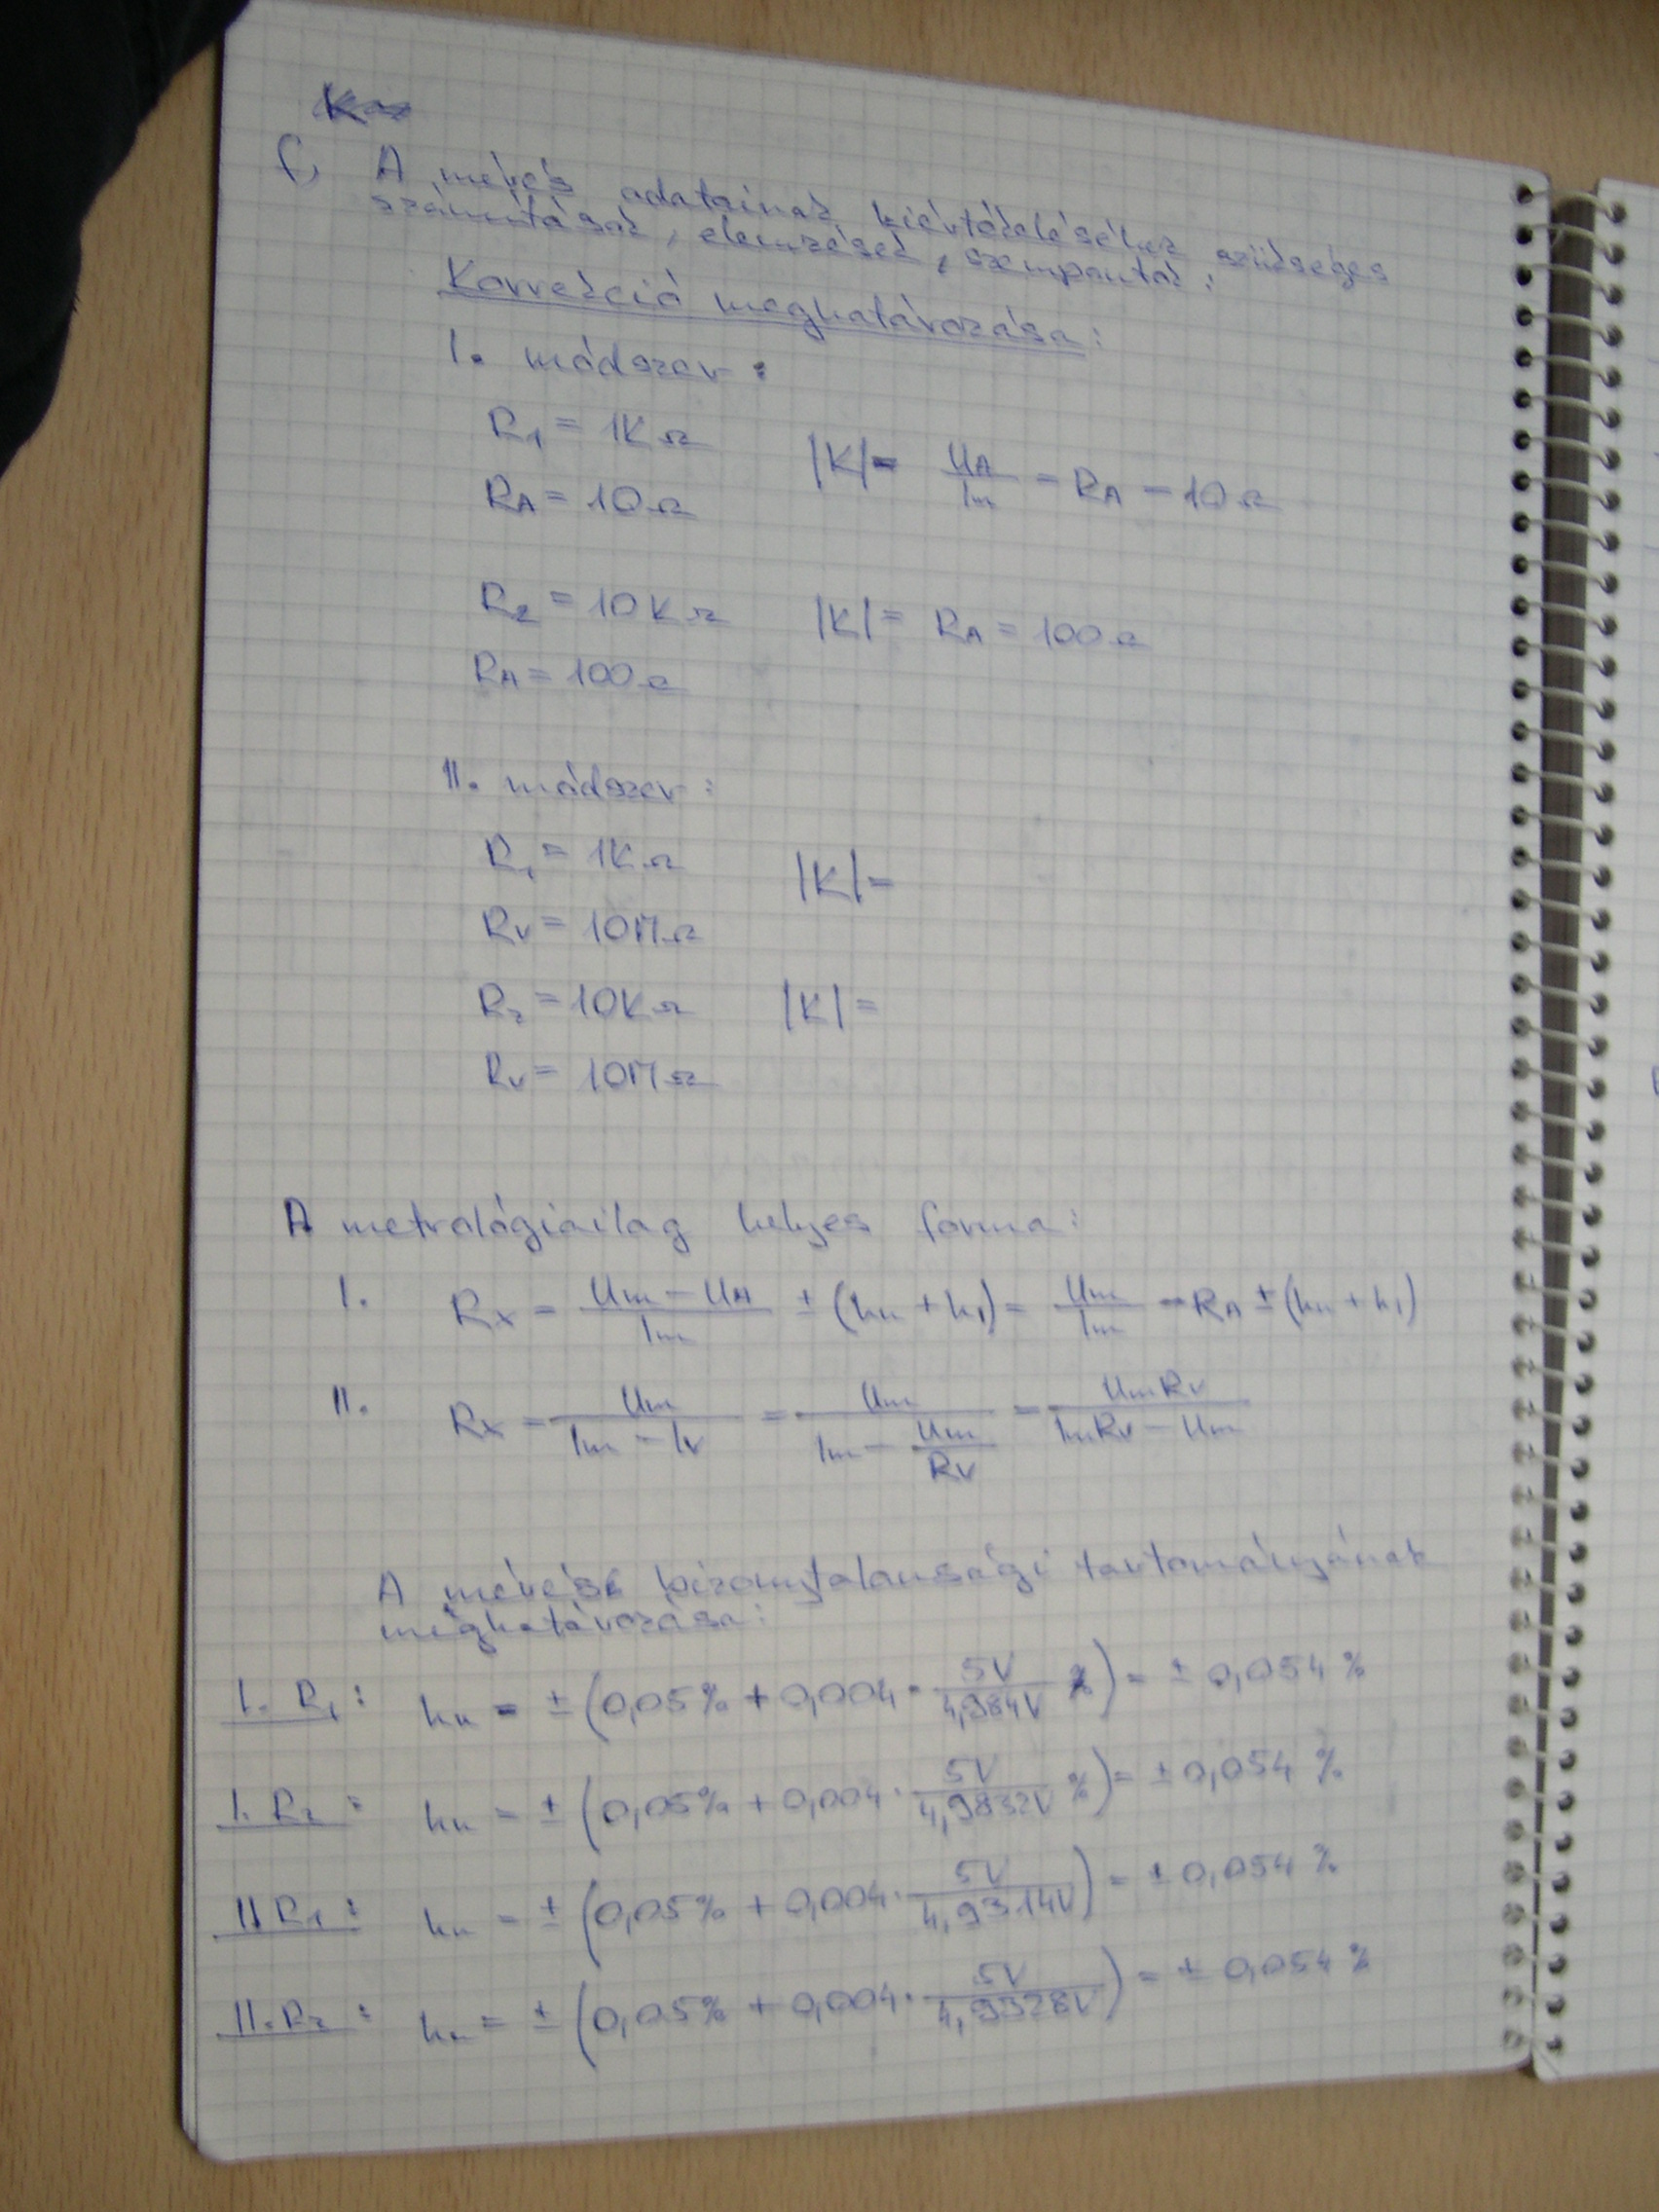 f, A mérés adatainak kiértékeléséhez szükséges
számítások, elemzések, szempontok:
Korrekció meghatározása:
I. módszer:
R₁ = 1KΩ
|K| = U_A / I_m = R_A = 10Ω
R_A = 10Ω
R₂ = 10KΩ |K| = R_A = 100Ω
R_A = 100Ω
II. módszer:
R₁ = 1KΩ |K| =
R_V = 10MΩ
R₂ = 10KΩ |K| =
R_V = 10MΩ
A metrológiailag helyes forma:
I. R_X = (U_m − U_A) / I_m ± (h_u + h_I) = U_m / I_m − R_A ± (h_u + h_I)
II. R_X = U_m / (I_m − I_V) = U_m / (I_m − U_m / R_V) = U_m R_V / (I_m R_V − U_m)
A mérések bizonytalansági tartományának
meghatározása:
I. R₁: h_u = ± (0,05% + 0,004 · 5V / 4,984V %) = ± 0,054 %
I. R₂: h_u = ± (0,05% + 0,004 · 5V / 4,9832V %) = ± 0,054 %
II R₁: h_u = ± (0,05% + 0,004 · 5V / 4,9314V) = ± 0,054 %
II. R₂: h_u = ± (0,05% + 0,004 · 5V / 4,9328V) = ± 0,054 %